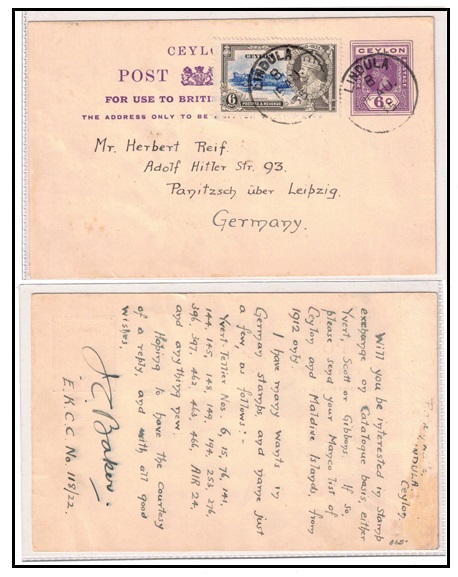 CEYLON
POST
FOR USE TO BRITI
THE ADDRESS ONLY TO BE
6
POSTAGE & REVENUE
LINDULA
8 AU
CEYLON
6
LINDULA
8 AU
Mr. Herbert Reif.
Adolf Hitler Str. 93.
Panitzsch über Leipzig.
Germany.
LINDULA
Ceylon
Will you be interested in stamp
exchange on Catalogue basis, either
Yvert, Scott or Gibbons. If so,
please send your Manco list of
Ceylon and Maldive Islands, from
1912 only.
I have many wants in
German stamps and name just
a few, as follows:-
Yvert-Tellier Nos. 6, 15, 76, 141,
144, 145, 148, 149, 194, 253, 276,
396, 397, 462, 463, 466, AIR 24,
and anything new.
Hoping to have the courtesy
of a reply, and with all good
wishes,
J.C. Baker.
E.K.C.C. No. 118/22.